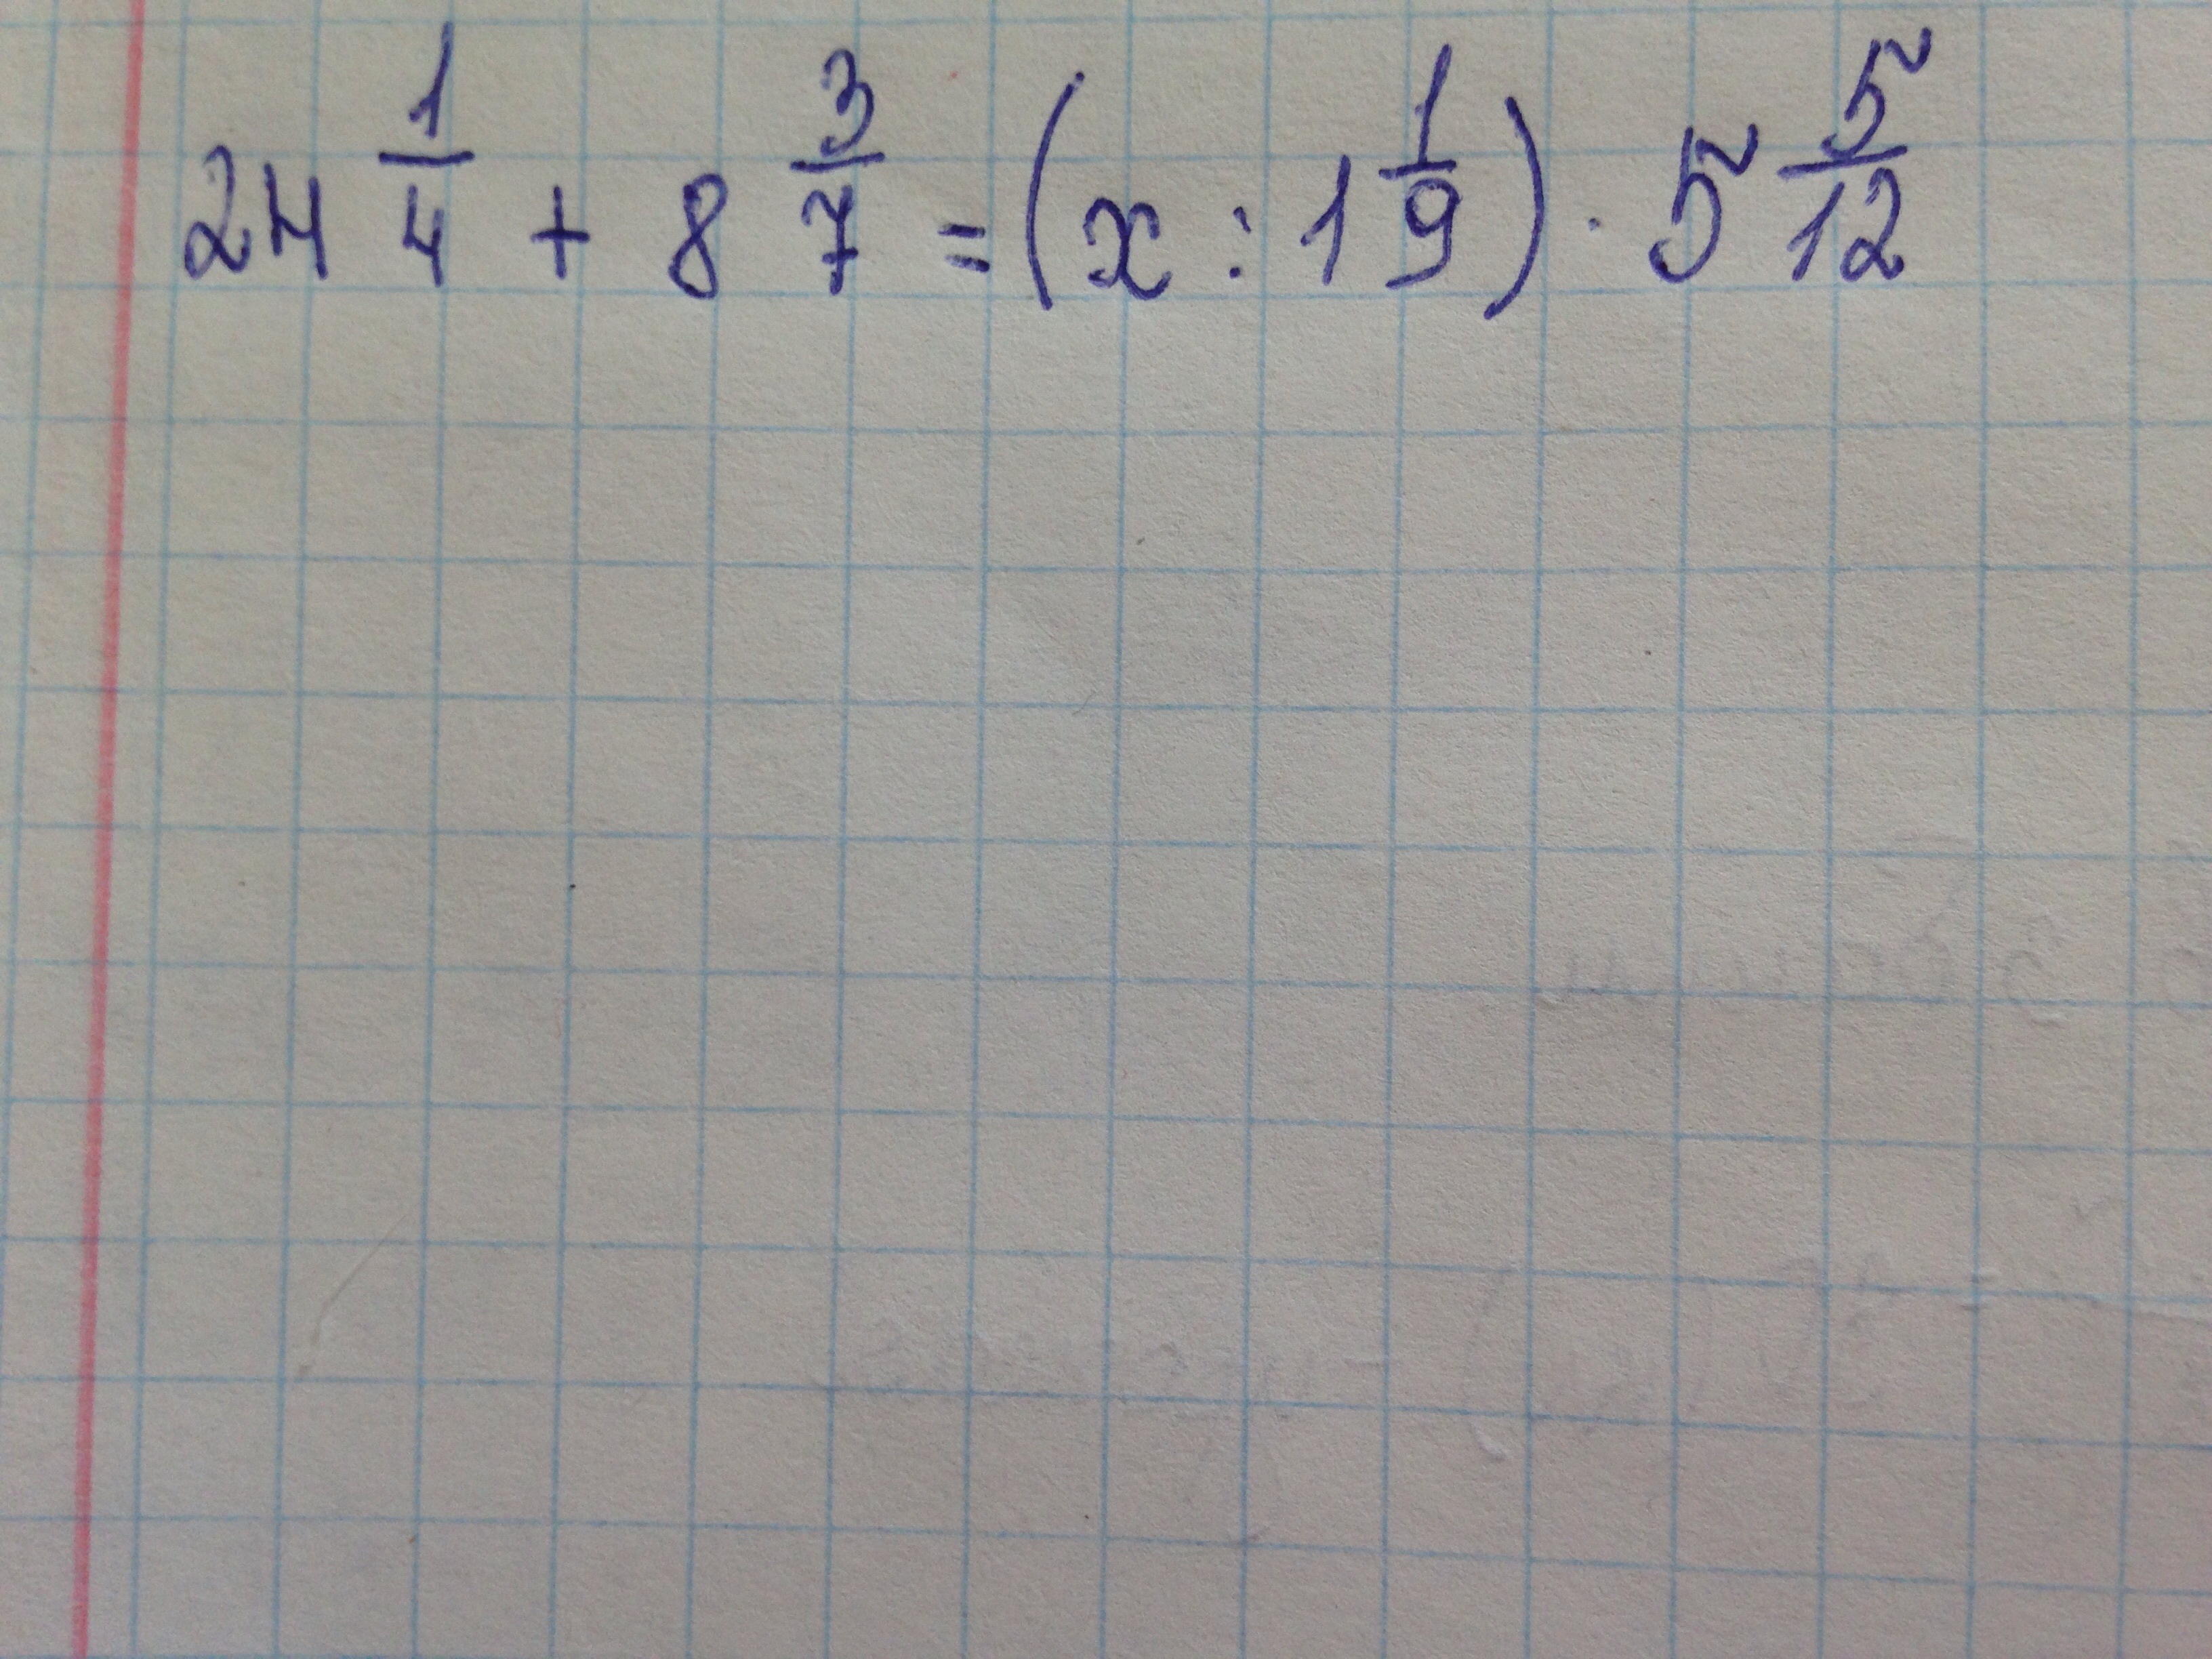 24 1/4 + 8 3/7 = (x : 1 1/9) · 5 5/12